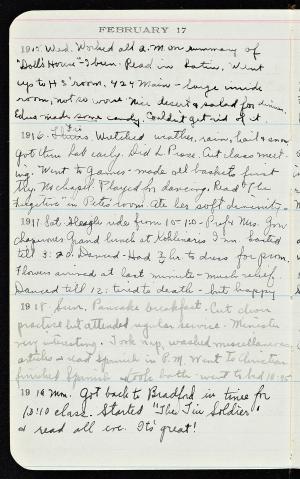 FEBRUARY 17
1915. Wed. Worked all a.m. on summary of
"Doll's House" Ibsen. Read in Latin. Went
up to H's room, 424 Main - large inside
room, not so worse. Nice desert & salad for dinner.
made some candy. Couldn't get rid of it.
1916. Thurs. Wretched weather, rain, hail & snow
got thru Lat early. Did L. Prose. Cut class meet-
ing. Went to Games - made all baskets first
thg. No chapel. Played for dancing. Read "The
in Pete's room. Ate her soft divinity.
1917 Sat. Sleigh ride from 10-1:0 - Prof & Mrs.
chaperones. Grand lunch at
till 3:20. Danced - Had 3/4 hr to dress for prom.
Flowers arrived at last minute - much relief
Danced till 12; tired to death - but happy
1918. Sun. Pancake breakfast. Cut down
practice but attended regular service. Minister
very interesting. Took nap, washed miscellaneous
articles & read Spanish in P.M. Went to Christian
finished Spanish & took bath - went to bed 10:45
1919 Mon. Got back to Bradford in time for
10:10 class. Started "The Tin Soldier"
& read all eve. It's great!